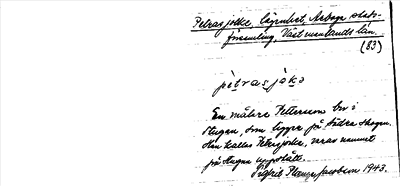 Petrasjakke, lägenhet, Arboga stads-
församling, Västmanlands län.
(83)
pètrasjàkə
En målare Pettersson bor i
Stugan, som ligger på Södra skogen.
Han kallas Petrasjocke, varav namnet
på stugan uppstått.
Sigfrid Jacobson 1943.